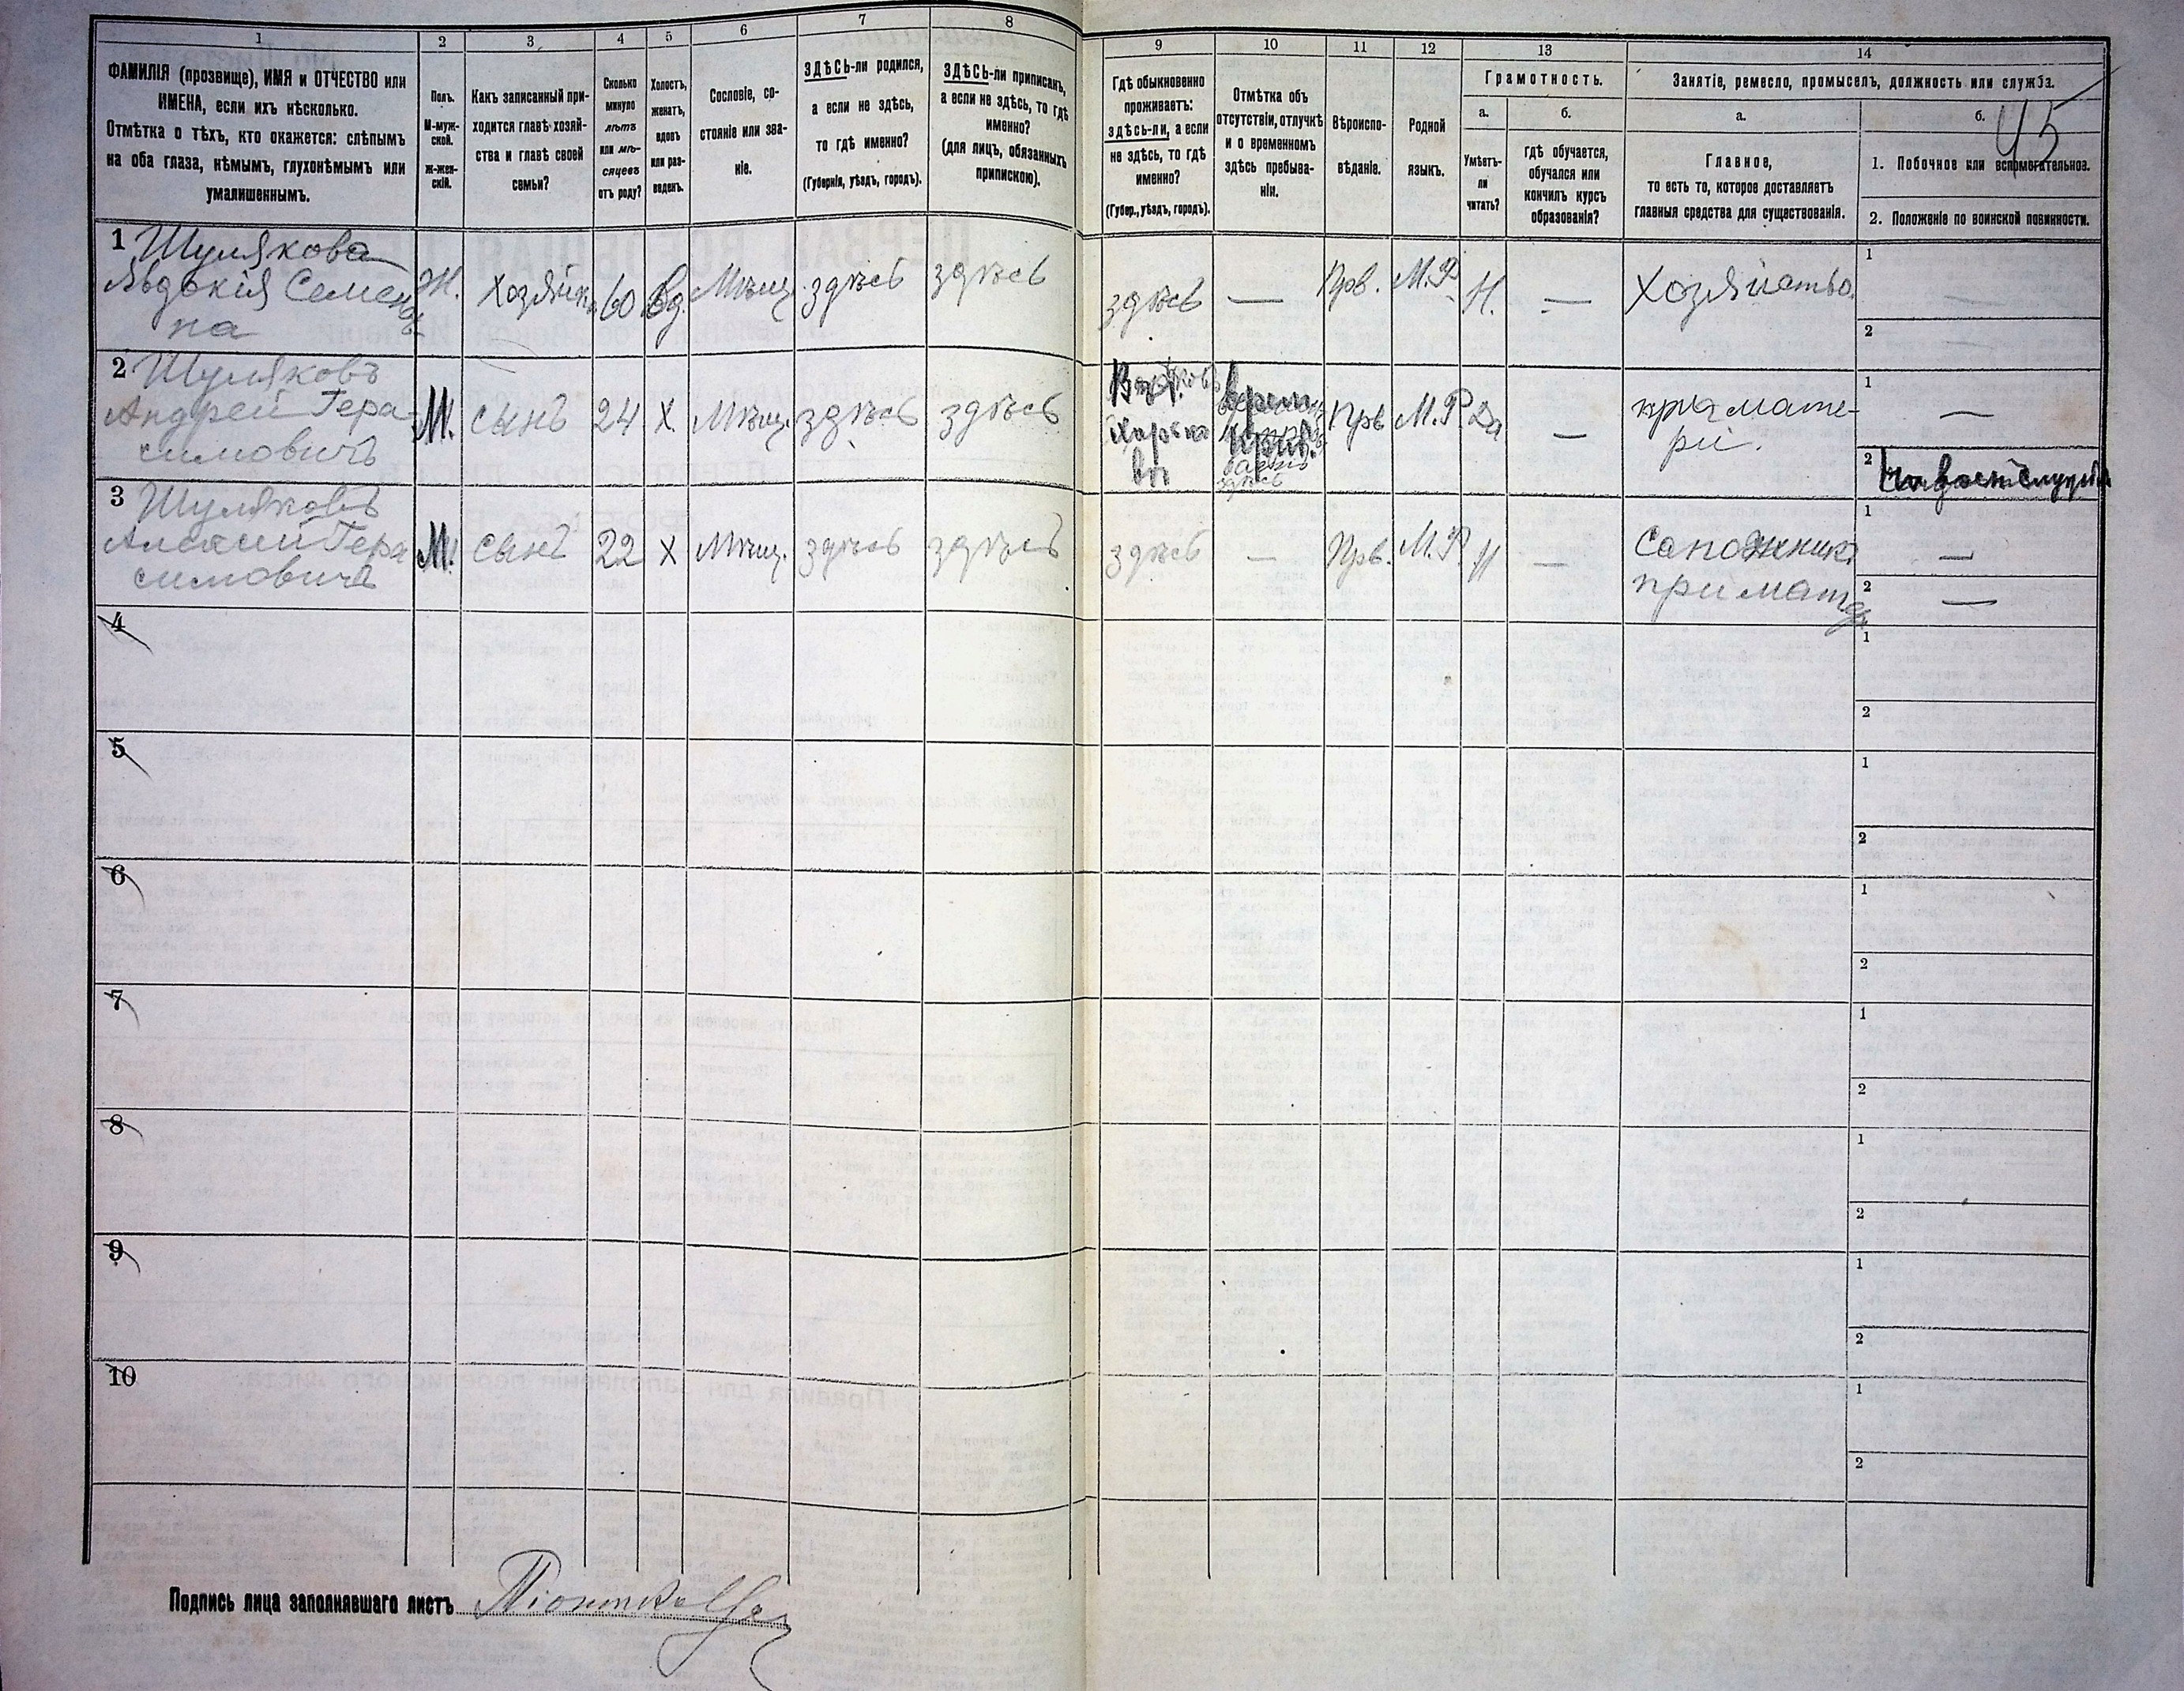 1
2
3
4
5
6
7
8
9
10
11
12
13
14
ФАМИЛІЯ (прозвище), ИМЯ и ОТЧЕСТВО или
ИМЕНА, если ихъ нѣсколько.
Отмѣтка о тѣхъ, кто окажется: слѣпымъ
на оба глаза, нѣмымъ, глухонѣмымъ или
умалишеннымъ.
Полъ.
М-муж-
ской.
ж-жен-
скій.
Какъ записанный при-
ходится главѣ хозяй-
ства и главѣ своей
семьи?
Сколько
минуло
лѣтъ
или мѣ-
сяцевъ
отъ роду?
Холостъ,
женатъ,
вдовъ
или раз-
веденъ.
Сословіе, со-
стояніе или зва-
ніе.
ЗДѢСЬ-ли родился,
а если не здѣсь,
то гдѣ именно?
(Губернія, уѣздъ, городъ).
ЗДѢСЬ-ли приписанъ,
а если не здѣсь, то гдѣ
именно?
(для лицъ, обязанныхъ
припискою).
Гдѣ обыкновенно
проживаетъ:
здѣсь-ли, а если
не здѣсь, то гдѣ
именно?
(Губер., уѣздъ, городъ).
Отмѣтка объ
отсутствіи, отлучкѣ
и о временномъ
здѣсь пребыва-
ніи.
Вѣроиспо-
вѣданіе.
Родной
языкъ.
Грамотность.
а.
Умѣетъ-
ли
читать?
б.
гдѣ обучается,
обучался или
кончилъ курсъ
образованія?
Занятіе, ремесло, промыселъ, должность или служба.
а.
Главное,
то есть то, которое доставляетъ
главныя средства для существованія.
б.
45
1. Побочное или вспомогательное.
2. Положеніе по воинской повинности.
1 Шулякова
Явдокія Семенов
на
Ж.
Хозяйка
60
Вд.
Мѣщ.
здѣсь
здѣсь
здѣсь
—
Прв.
М.Р.
Н.
—
Хозяйство
1
2
2 Шуляковъ
Андрей Гера-
симовичъ
М.
сынъ
24
Х.
Мѣщ.
здѣсь
здѣсь
Харько
вѣ
Прв
М.Р.
Да
—
при мате-
ри.
1 —
2
3 Шуляковъ
Алексий Гера
симовичъ
М.
сынъ
22
Х
Мѣщ.
здѣсь
здѣсь
здѣсь
—
Прв.
М.Р.
Н
—
Сапожникъ
при матер
1 —
2 —
4
1
2
5
1
2
6
1
2
7
1
2
8
1
2
9
1
2
10
1
2
Подпись лица заполнявшаго листъ